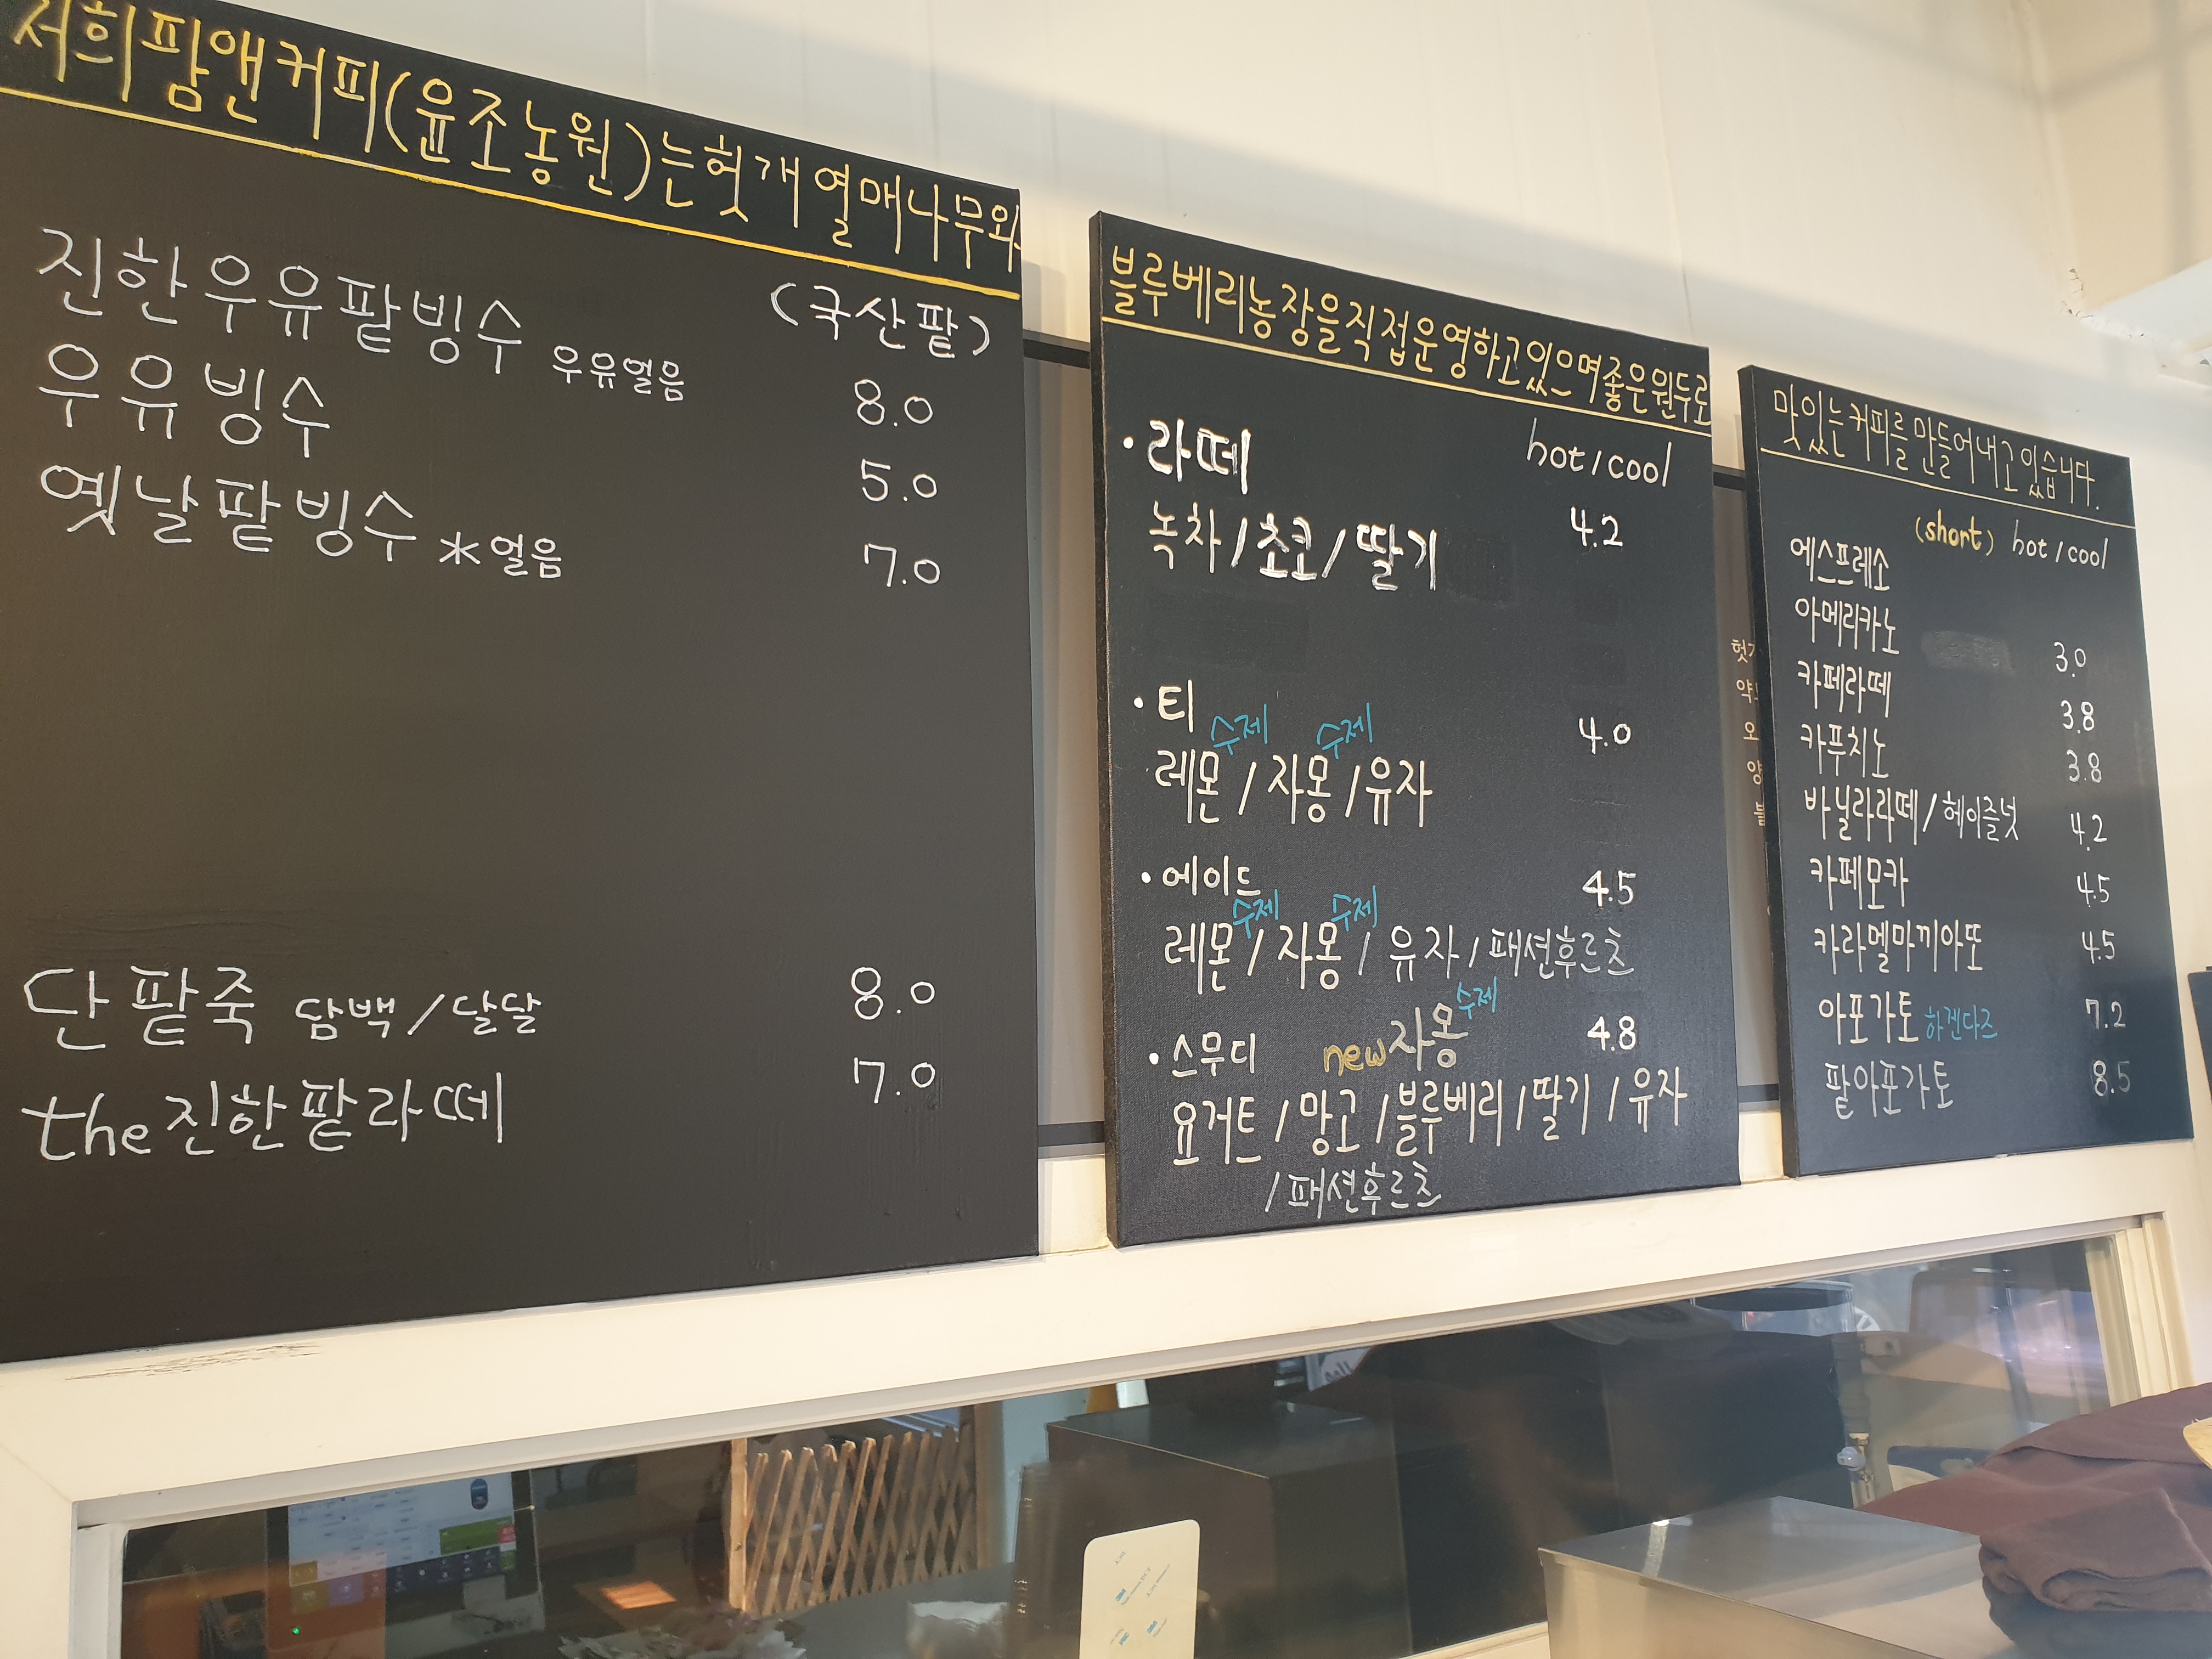 저희팜앤커피(윤조농원)는헛개열매나무와
(국산팥)
진한우유팥빙수 우유얼음 8.0
우유빙수 5.0
옛날팥빙수 *얼음 7.0
단팥죽 담백/달달 8.0
the진한팥라떼 7.0
블루베리농장을직접운영하고있으며좋은원두로
·라떼 hot/cool
녹차/초코/딸기 4.2
·티 4.0
수제 수제
레몬/자몽/유자
·에이드 4.5
수제 수제
레몬/자몽/유자/패션후르츠
수제
·스무디 new자몽 4.8
요거트/망고/블루베리/딸기/유자
/패션후르츠
맛있는커피를만들어내고있습니다.
(short) hot/cool
에스프레소
아메리카노 3.0
카페라떼 3.8
카푸치노 3.8
바닐라라떼/헤이즐넛 4.2
카페모카 4.5
카라멜마끼아또 4.5
아포가토 하겐다즈 7.2
팥아포가토 8.5